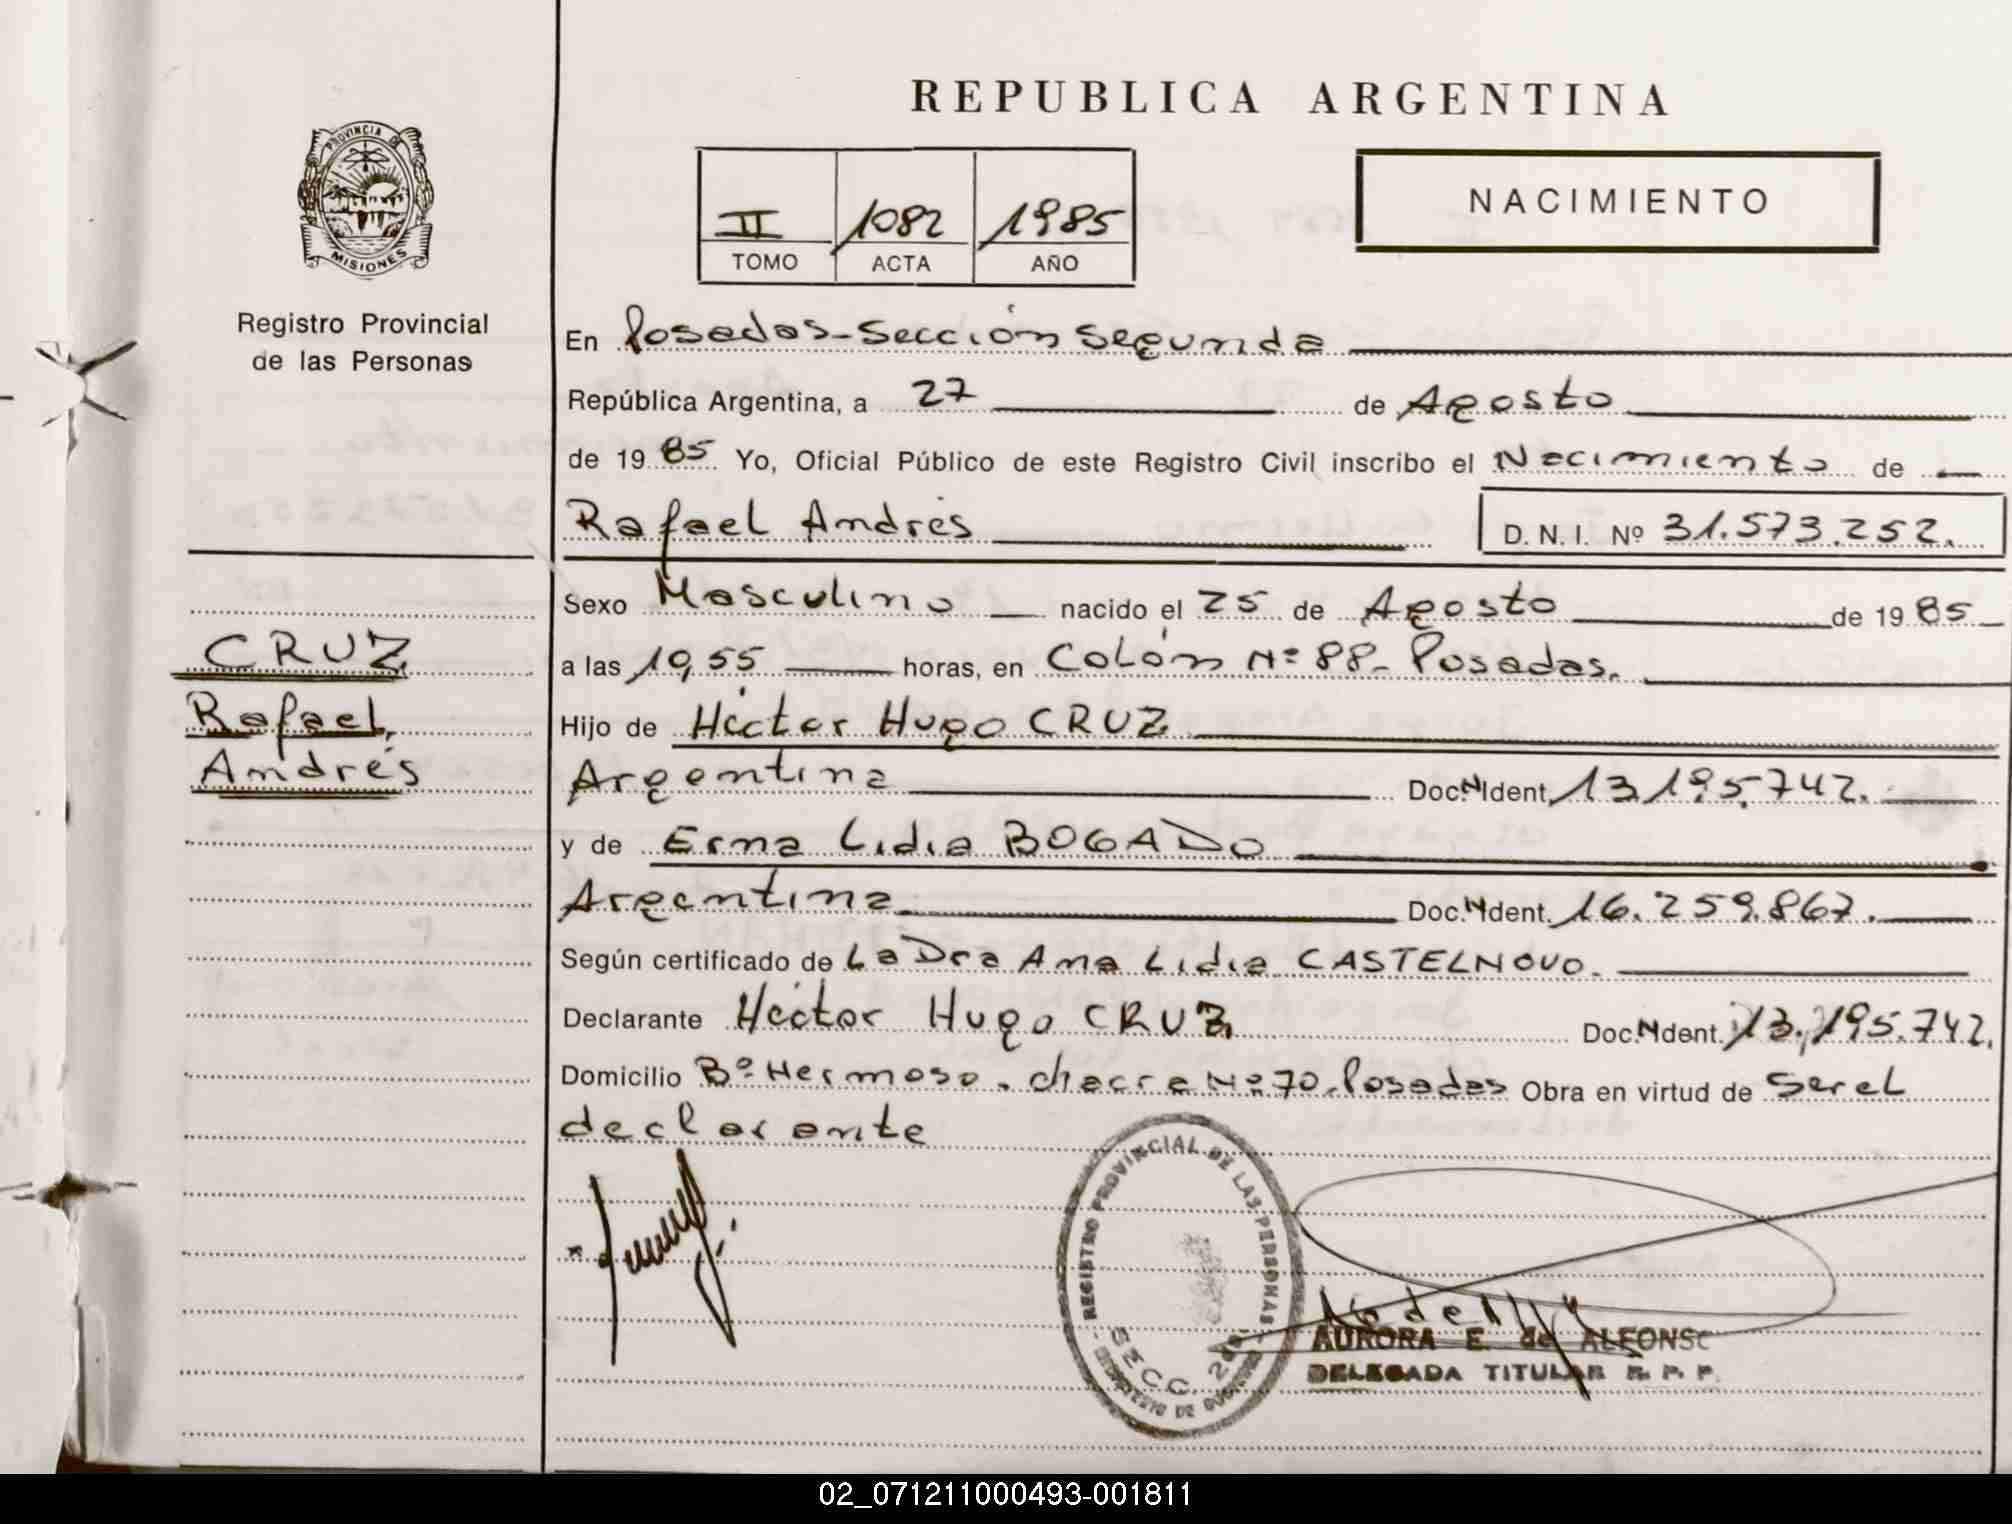 REPUBLICA ARGENTINA
PROVINCIA DE
MISIONES
Registro Provincial
de las Personas
II 1082 1985
TOMO ACTA AÑO
NACIMIENTO
En Posadas-Sección Segunda
República Argentina, a 27 de Agosto
de 1985 Yo, Oficial Público de este Registro Civil, inscribo el Nacimiento de
Rafael Andrés D. N. I. Nº 31.573.252.
Sexo Masculino nacido el 25 de Agosto de 1985
CRUZ
a las 10,55 horas, en Colón Nº 88- Posadas.
Rafael
Hijo de Héctor Hugo CRUZ
Andrés
Argentina Doc.N.Ident. 13.195.742.
y de Erma Lidia BOGADO
Argentina Doc.N.Ident. 16.259.867.
Según certificado de La Dra Ana Lidia CASTELNOVO.
Declarante Héctor Hugo CRUZ Doc.N.Ident. 13.195.742.
Domicilio Bº Hermoso. chacra Nº 70. Posadas Obra en virtud de ser el
declarante
REGISTRO PROVINCIAL DE LAS PERSONAS
SECC. 2da.
AURORA E. de ALFONSO
DELEGADA TITULAR R. P. P.
02_071211000493-001811